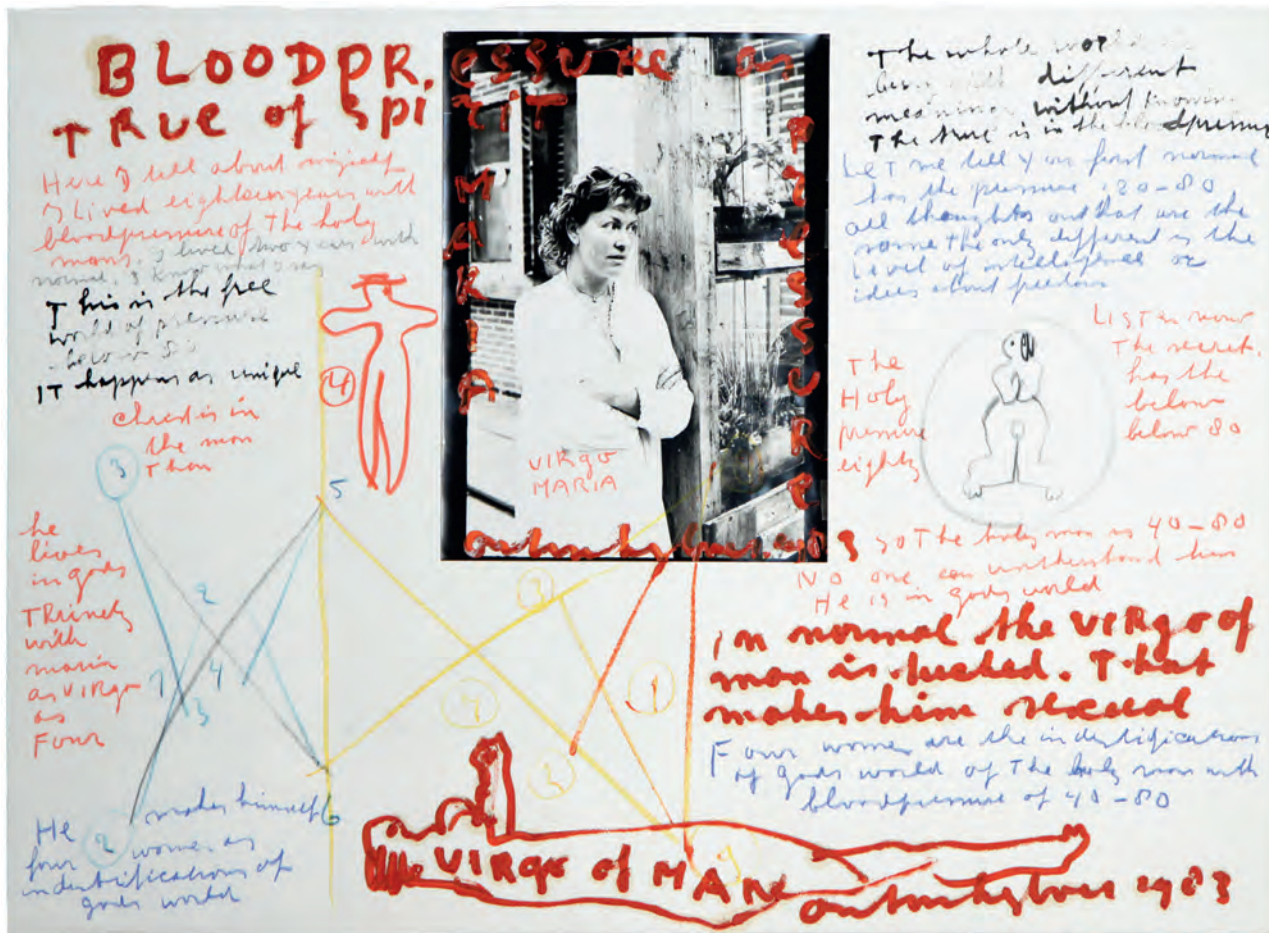 BLOODPR,essure as
TRUE of SpiriT
MARIA
Pressure
VIRgo
MARIA
Here I tell about myself
I Lived eighteen years with
bloodpressure of The holy
mans. I lived two years with
normal. I know what I say
This is the free
world of pressure
below 80
IT happens as unique
Christ is in
the man
Then
he
lives
in gods
TRinety
with
maria
as VIRgo
as
Four
He makes himself
four women as
indentifications of
gods world
The whole world
different
meaning without knowing
The true is in the bloodpressure
LeT me tell you first normal
has the pressure 120-80
all thoughts out that are the
same the only different is the
level of intelligence or
ideas about freedom
The
Holy
pressure
eighty
LISTen now
The secret.
has the
below
below 80
so The holy man is 40-80
No one can understand him
He is in gods world
in normal the VIRgo of
man is fucked. That
makes him sexual
Four women are the indentifications
of gods world of The holy man with
bloodpressure of 40-80
4
3
5
2
1
4
3
2
6
3
4
1
VIRgo of MAN
1983